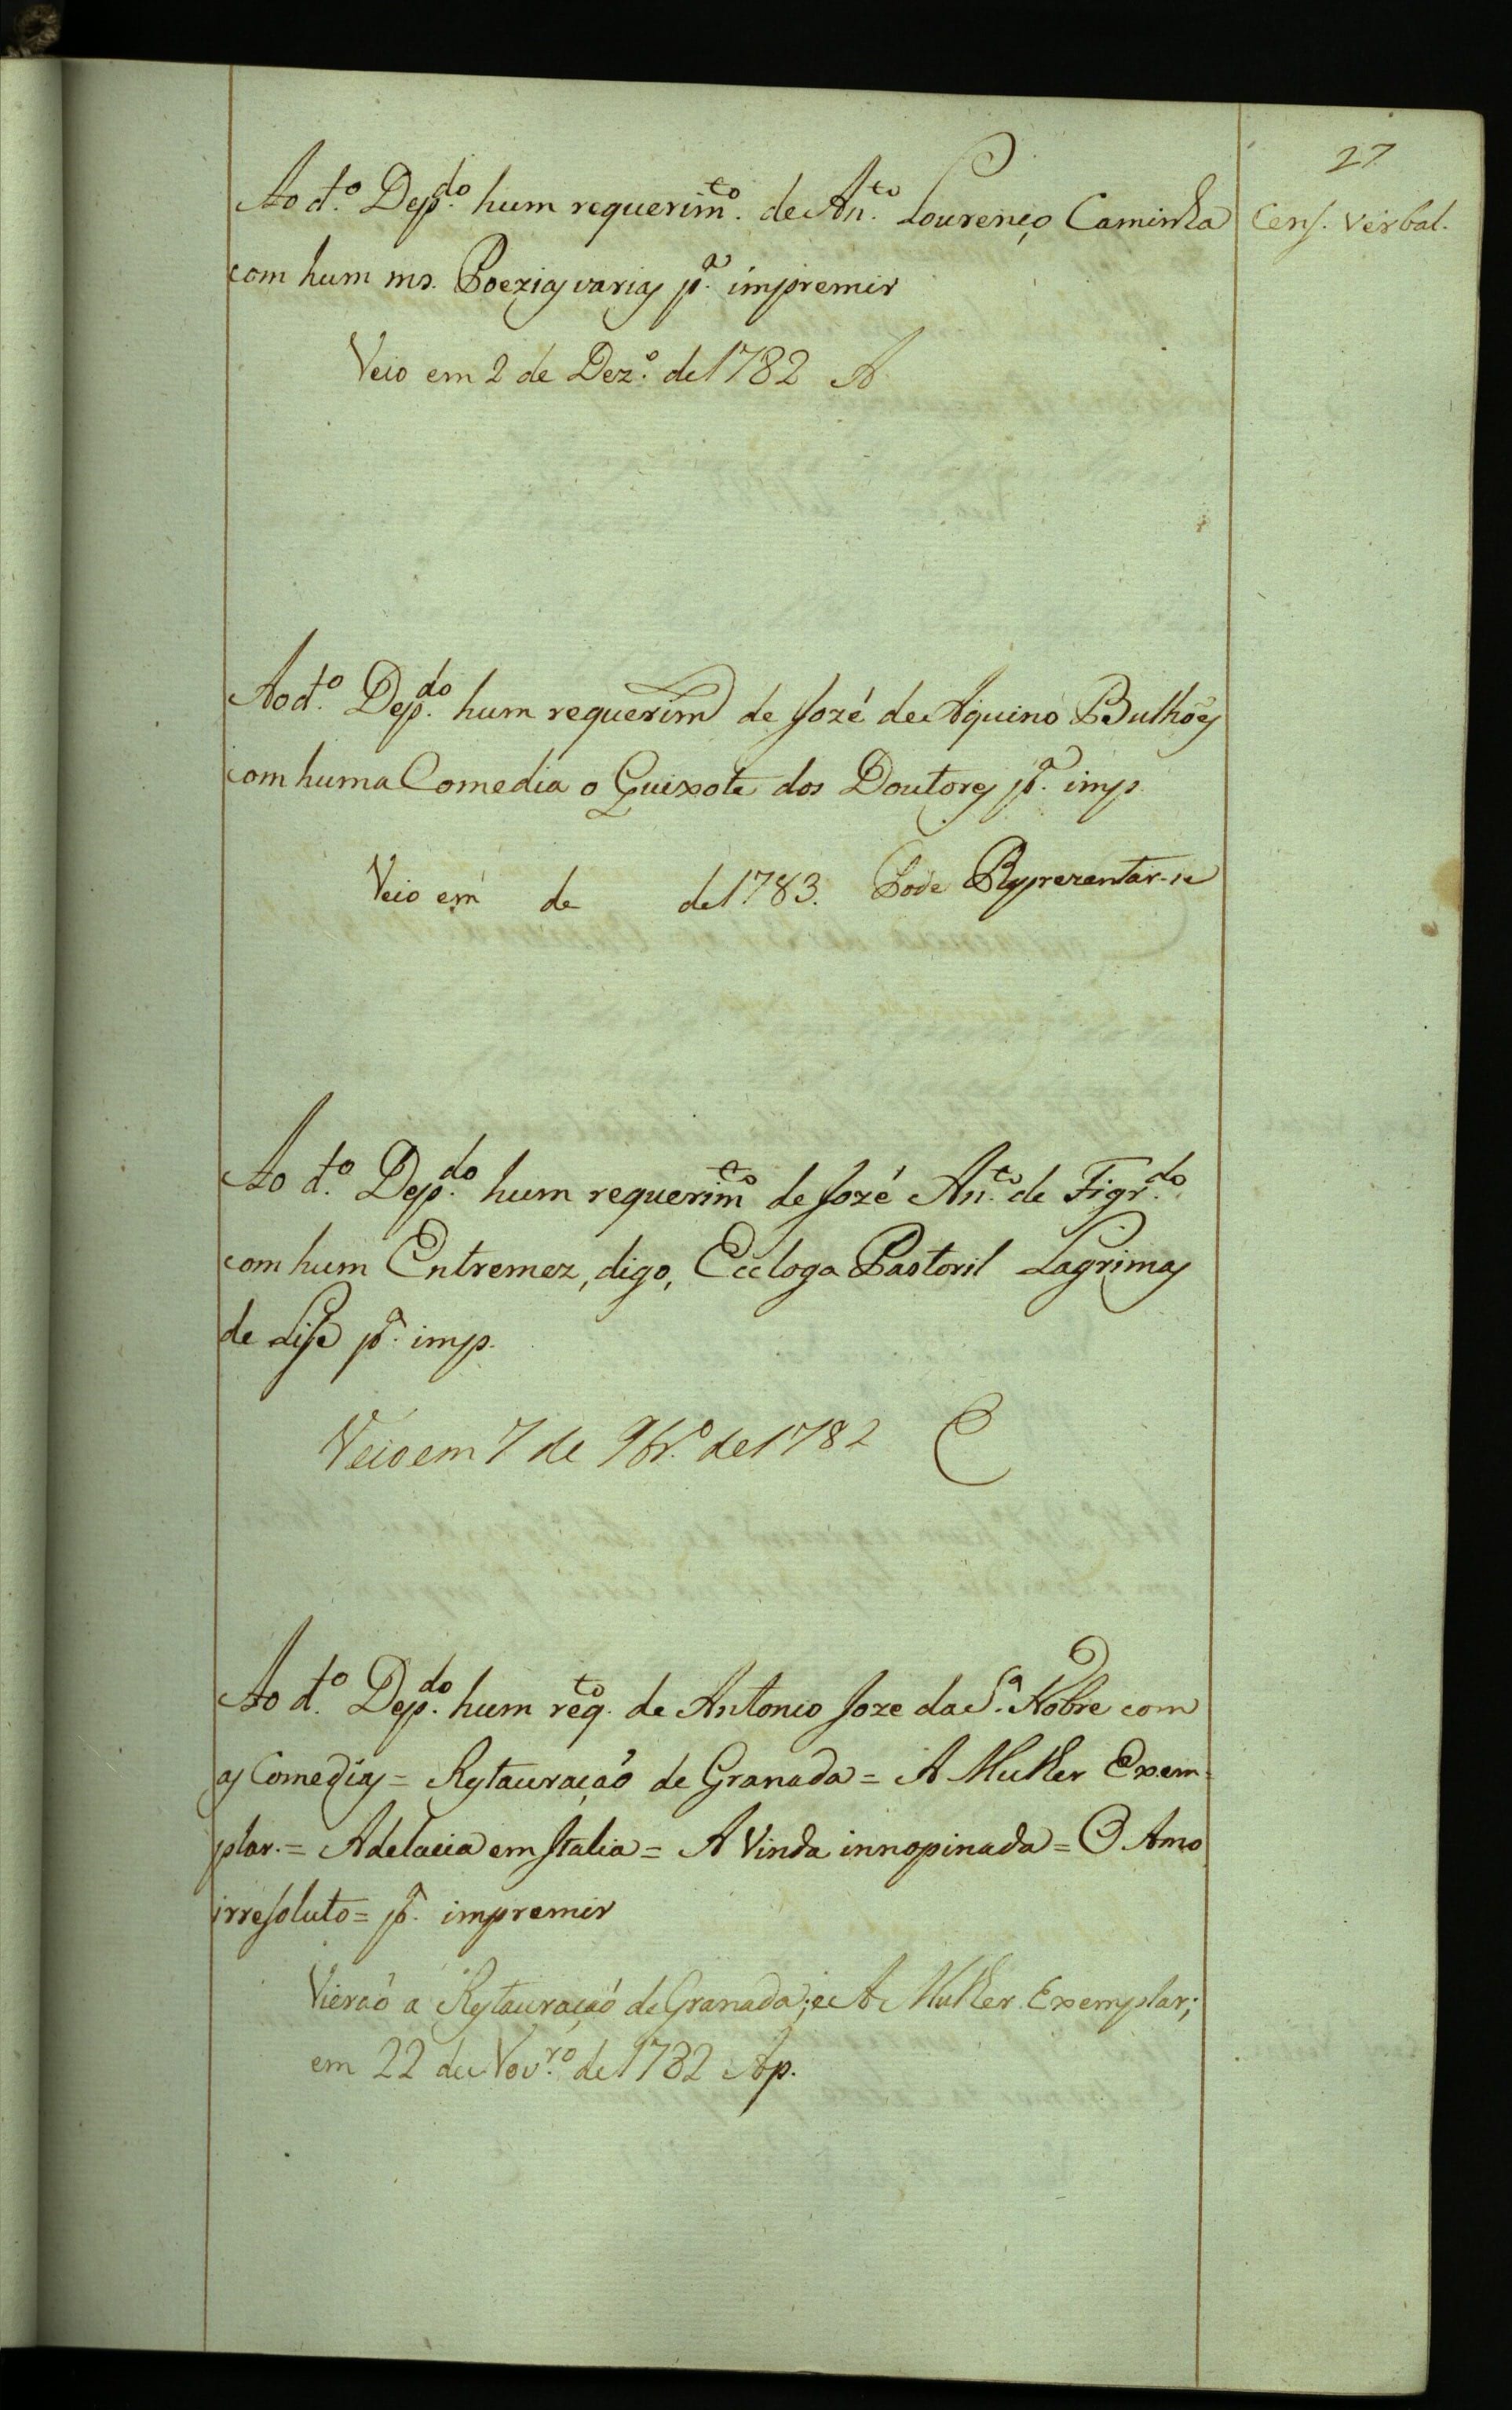 27
Ao d.º Dep.do hum requerim.to de An.to Lourenço Caminha
Cens. Verbal.
com hum ms. Poezias varias p.ª impremir
Veio em 2 de Dez.º de 1782 A
Ao d.º Dep.do hum requerim de Jozé de Aquino Bulhões
com huma Comedia o Quixote dos Doutores p.ª imp.
Veio em de de 1783. Pode Reprezentar-se
Ao d.º Dep.do hum requerim.to de Jozé An.to de Figr.do
com hum Entremez, digo, Eccloga Pastoril Lagrimas
de Lise p.ª imp.
Veio em 7 de 9br.º de 1782 E
Ao d.º Dep.do hum req.to de Antonio Joze da S.ª Nobre com
as Comedias = Restauração de Granada = A Mulher Exem-
plar. = Adelacia em Italia = A Vinda innopinada = O Amo
irresoluto = p.ª impremir
Vierão a Restauração de Granada; e A Mulher Exemplar;
em 22 de Nov.ro de 1782 Ap.